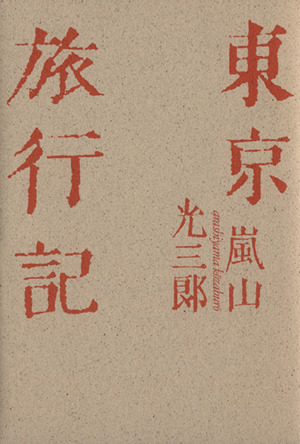 東京
旅行記
嵐山
光三郎
arashiyama kōzaburō